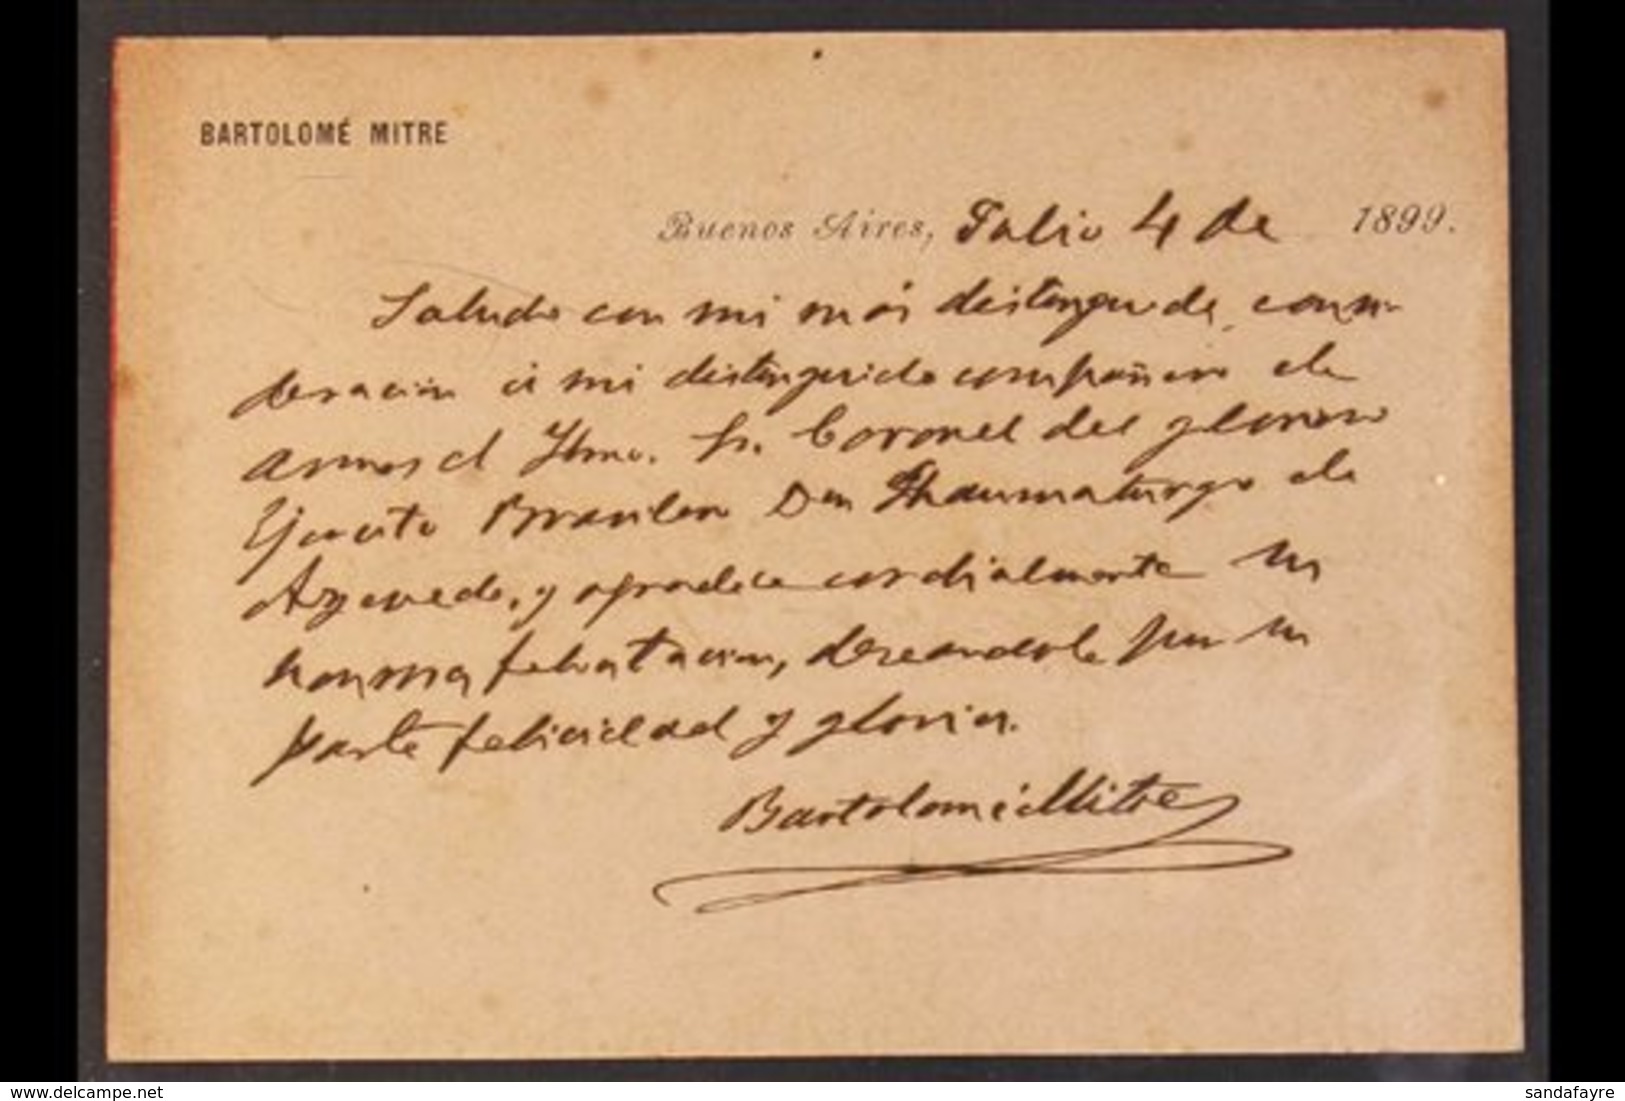 BARTOLOMÉ MITRE
Buenos Aires, Julio 4 de 1899.
Saludo con mi más distinguida consi-
deración á mi distinguido compañero de
armas el Ilmo. Sr. Coronel del glorioso
Ejército Brasilero Don Thaumaturgo de
Azevedo, y agradece cordialmente su
honrosa felicitacion, deseandole por su
parte felicidad y gloria.
Bartolomé Mitre
delcampe.net
sandafayre